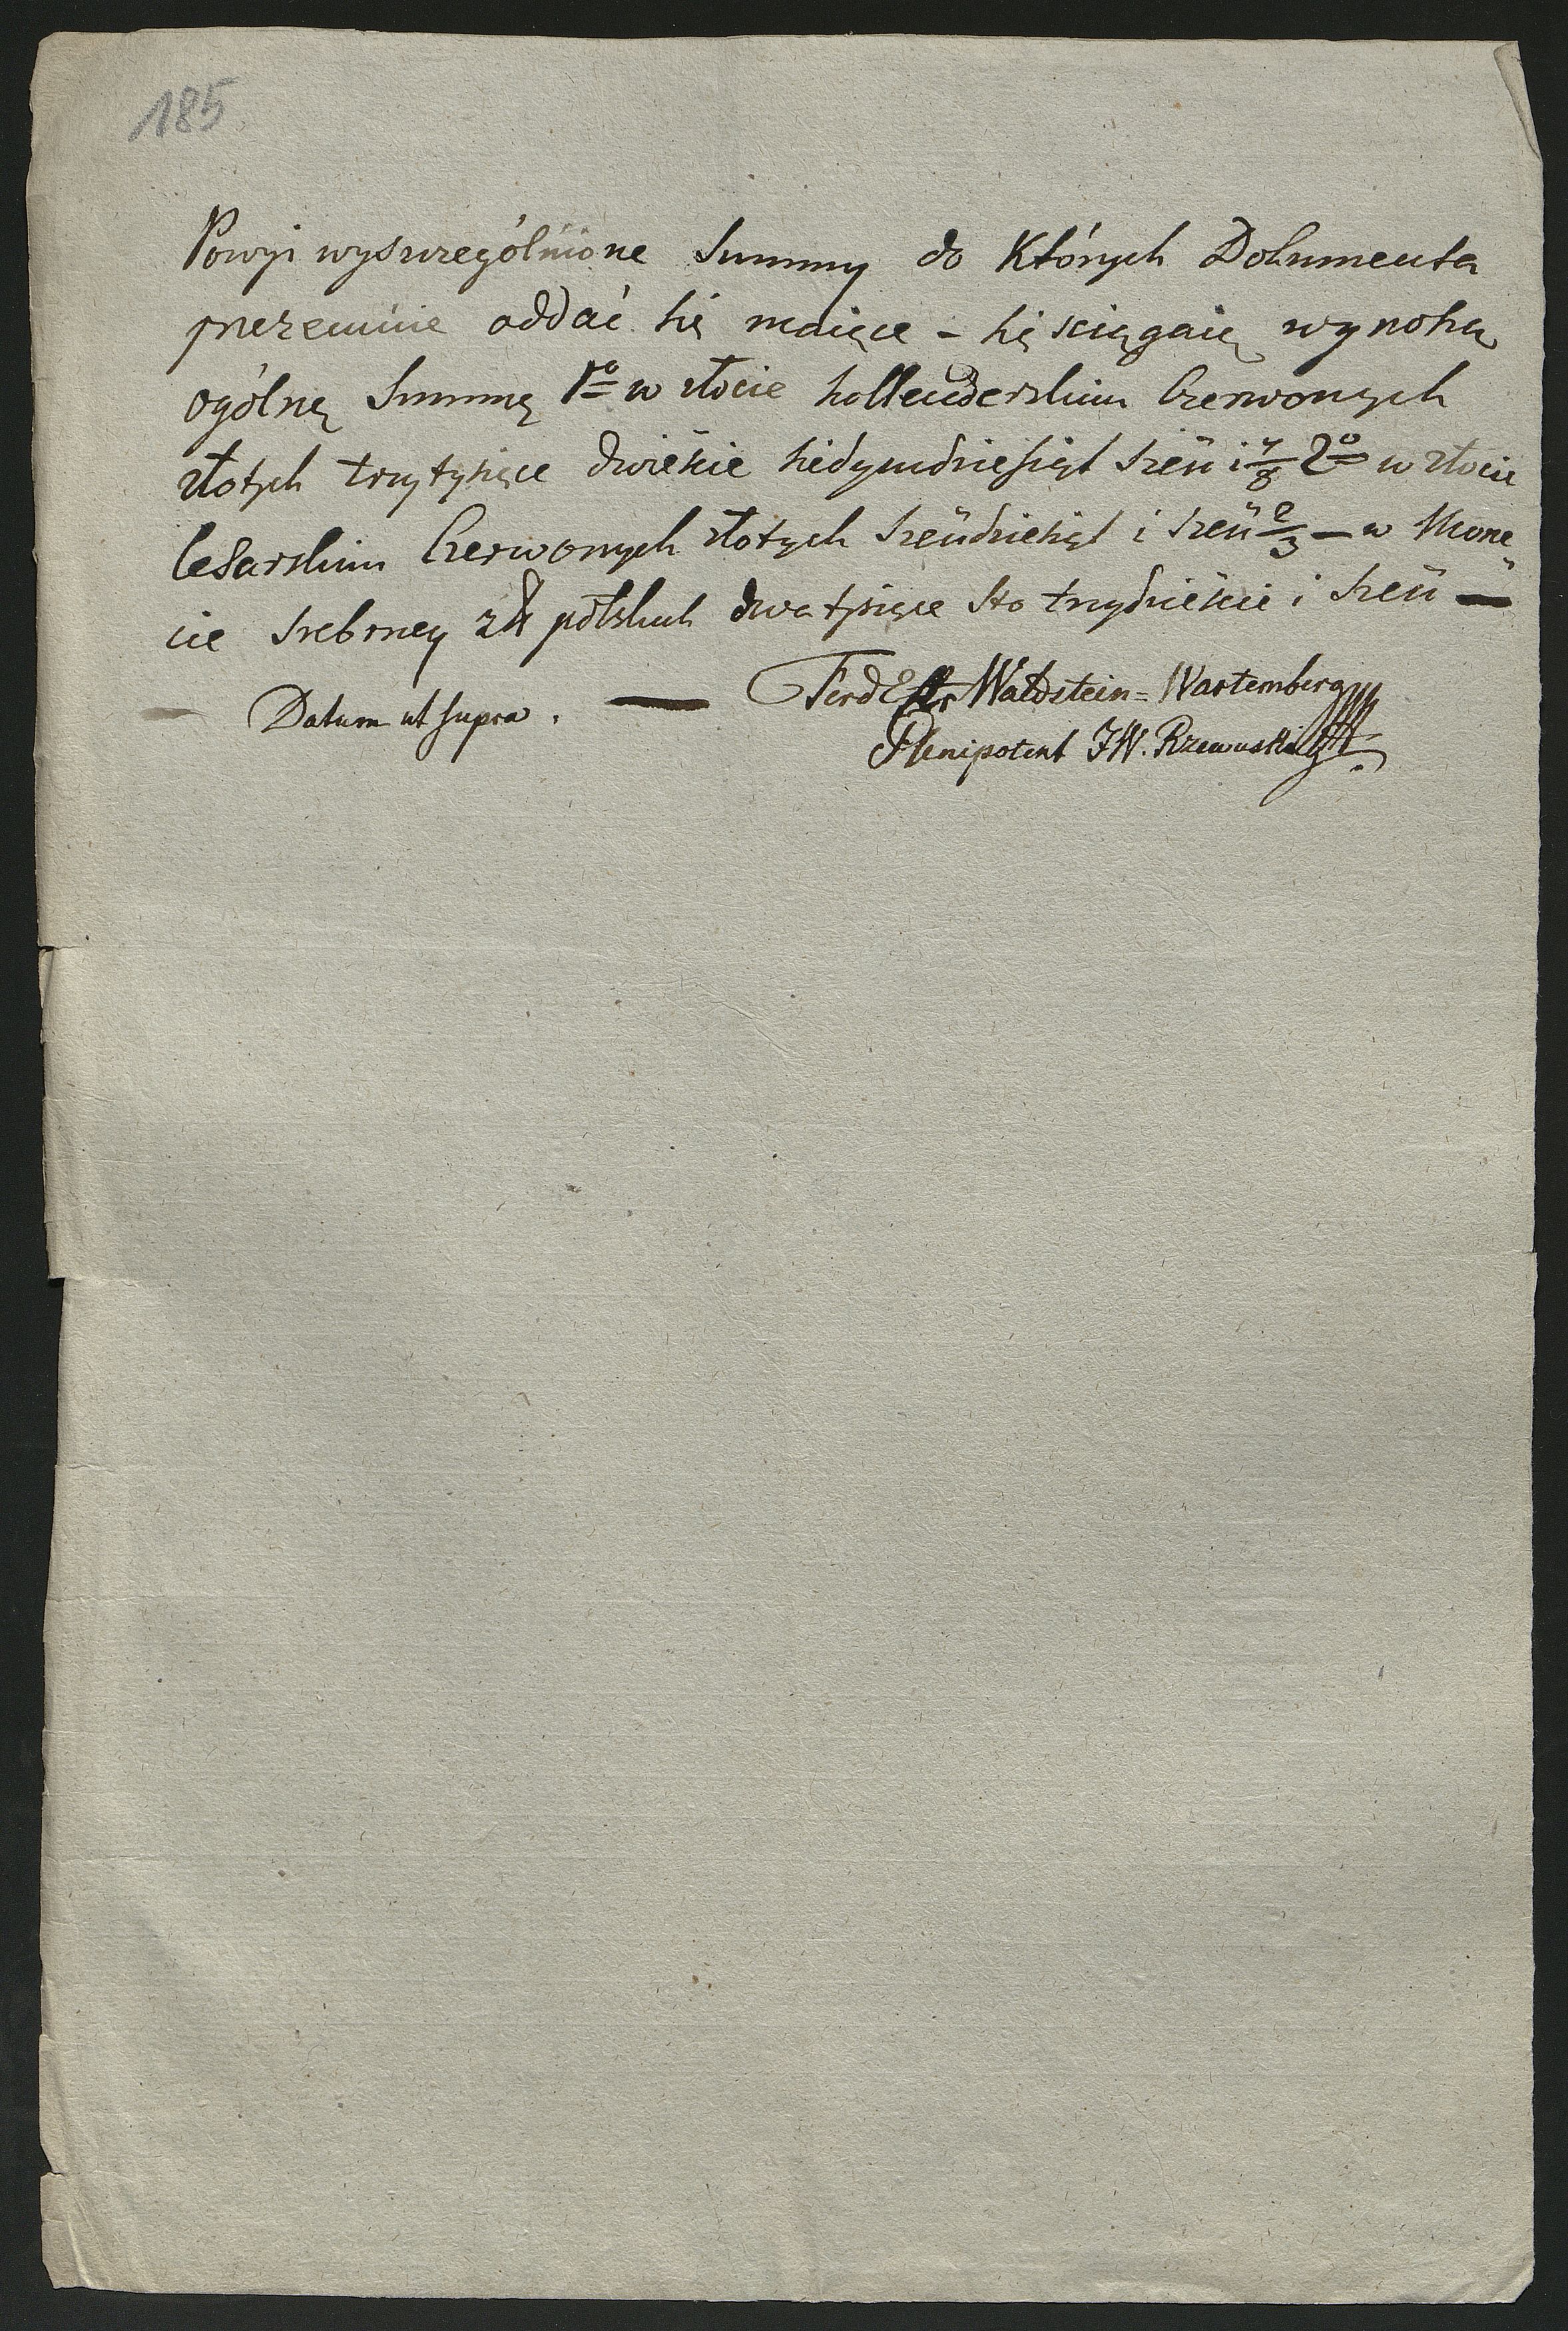 185.
Powyż wyszczególnione Summy do Których Dokumenta
przezemnie oddać się maiące – się sciągaią wynoszą
ogólną Summę 1o w złocie hollenderskim Czerwonych
złotych trzy tysiące dwieście siedymdziesiąt sześć i 7/8 2o w złocie
Cesarskim Czerwonych złotych sześćdziesiąt i sześć 2/3 – w Mone
cie srebrney zł polskich dwa tysiące sto trzydzieście i sześć —
Datum ut supra. — Ferd Waldstein=Wartemberg
Plenipotent JW. Rzewuski